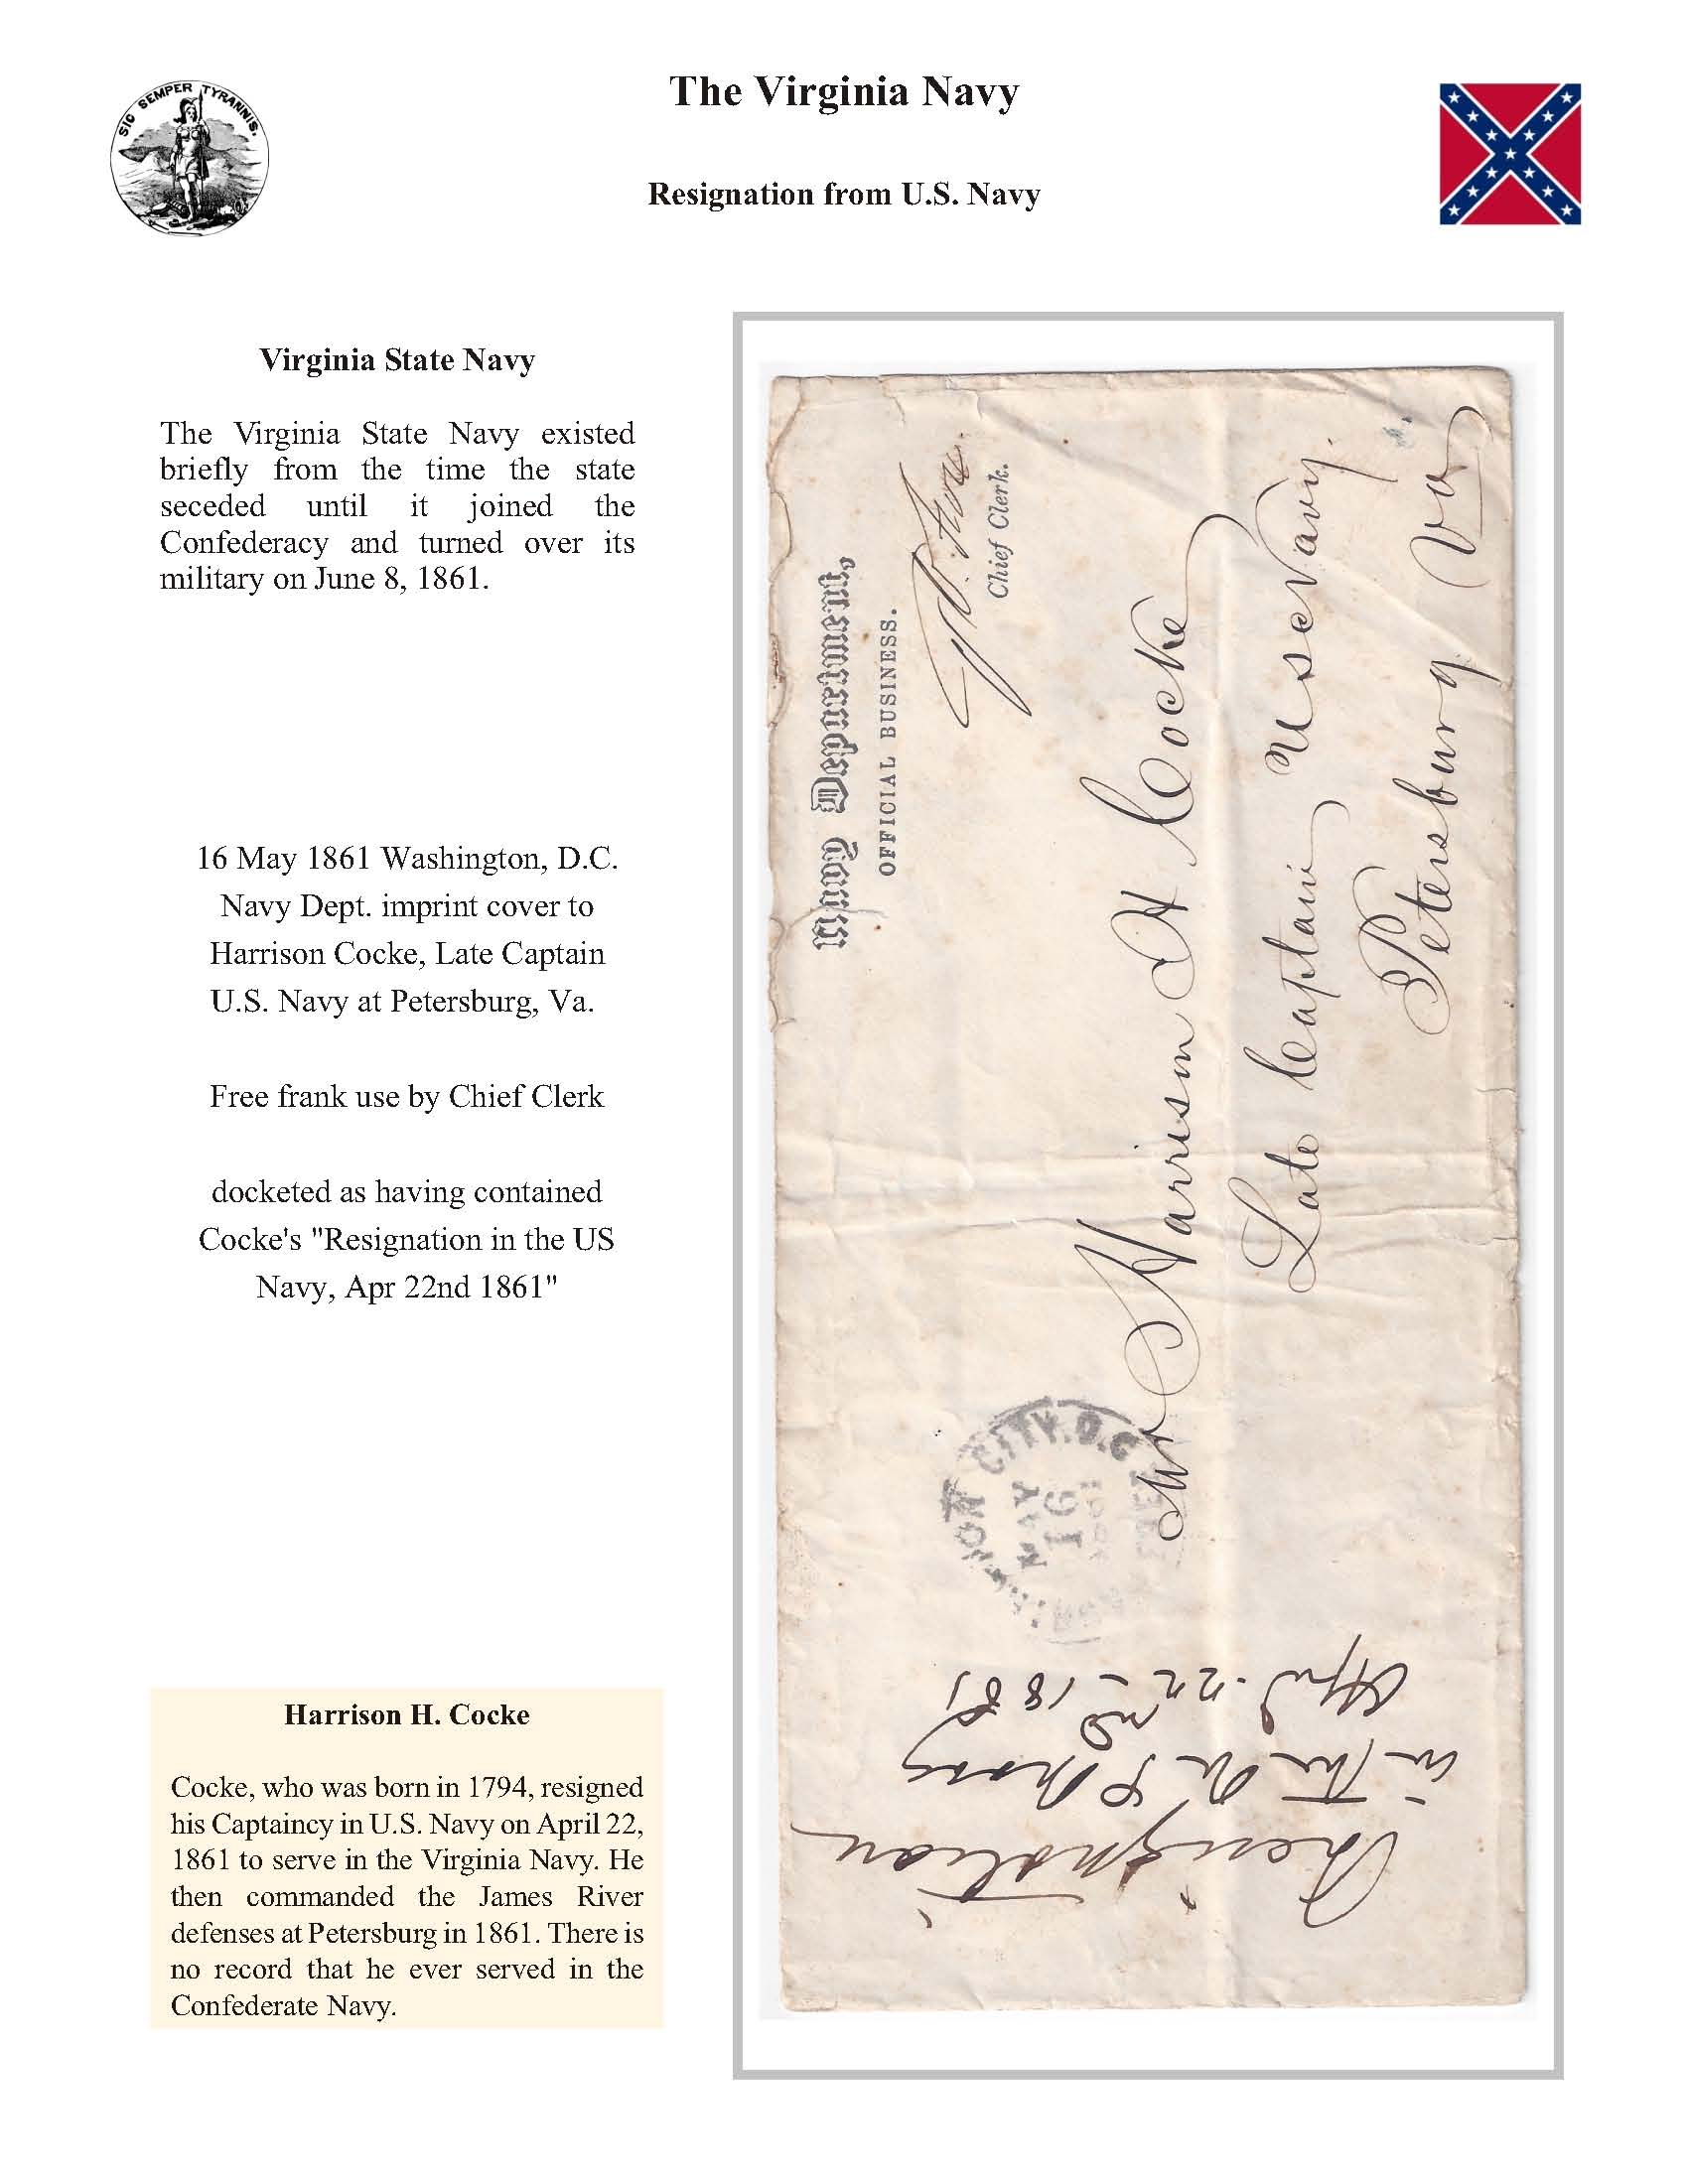 SIC SEMPER TYRANNIS.
The Virginia Navy
Resignation from U.S. Navy
Virginia State Navy
The Virginia State Navy existed
briefly from the time the state
seceded until it joined the
Confederacy and turned over its
military on June 8, 1861.
16 May 1861 Washington, D.C.
Navy Dept. imprint cover to
Harrison Cocke, Late Captain
U.S. Navy at Petersburg, Va.
Free frank use by Chief Clerk
docketed as having contained
Cocke's "Resignation in the US
Navy, Apr 22nd 1861"
Harrison H. Cocke
Cocke, who was born in 1794, resigned
his Captaincy in U.S. Navy on April 22,
1861 to serve in the Virginia Navy. He
then commanded the James River
defenses at Petersburg in 1861. There is
no record that he ever served in the
Confederate Navy.
Navy Department,
OFFICIAL BUSINESS.
Chief Clerk.
Mr Harrison H Cocke
Late Captain U S Navy.
Petersburg
Va
CITY. D.C
MAY
16
1861
Resignation
in the U S Navy
Apl. 22nd 1861